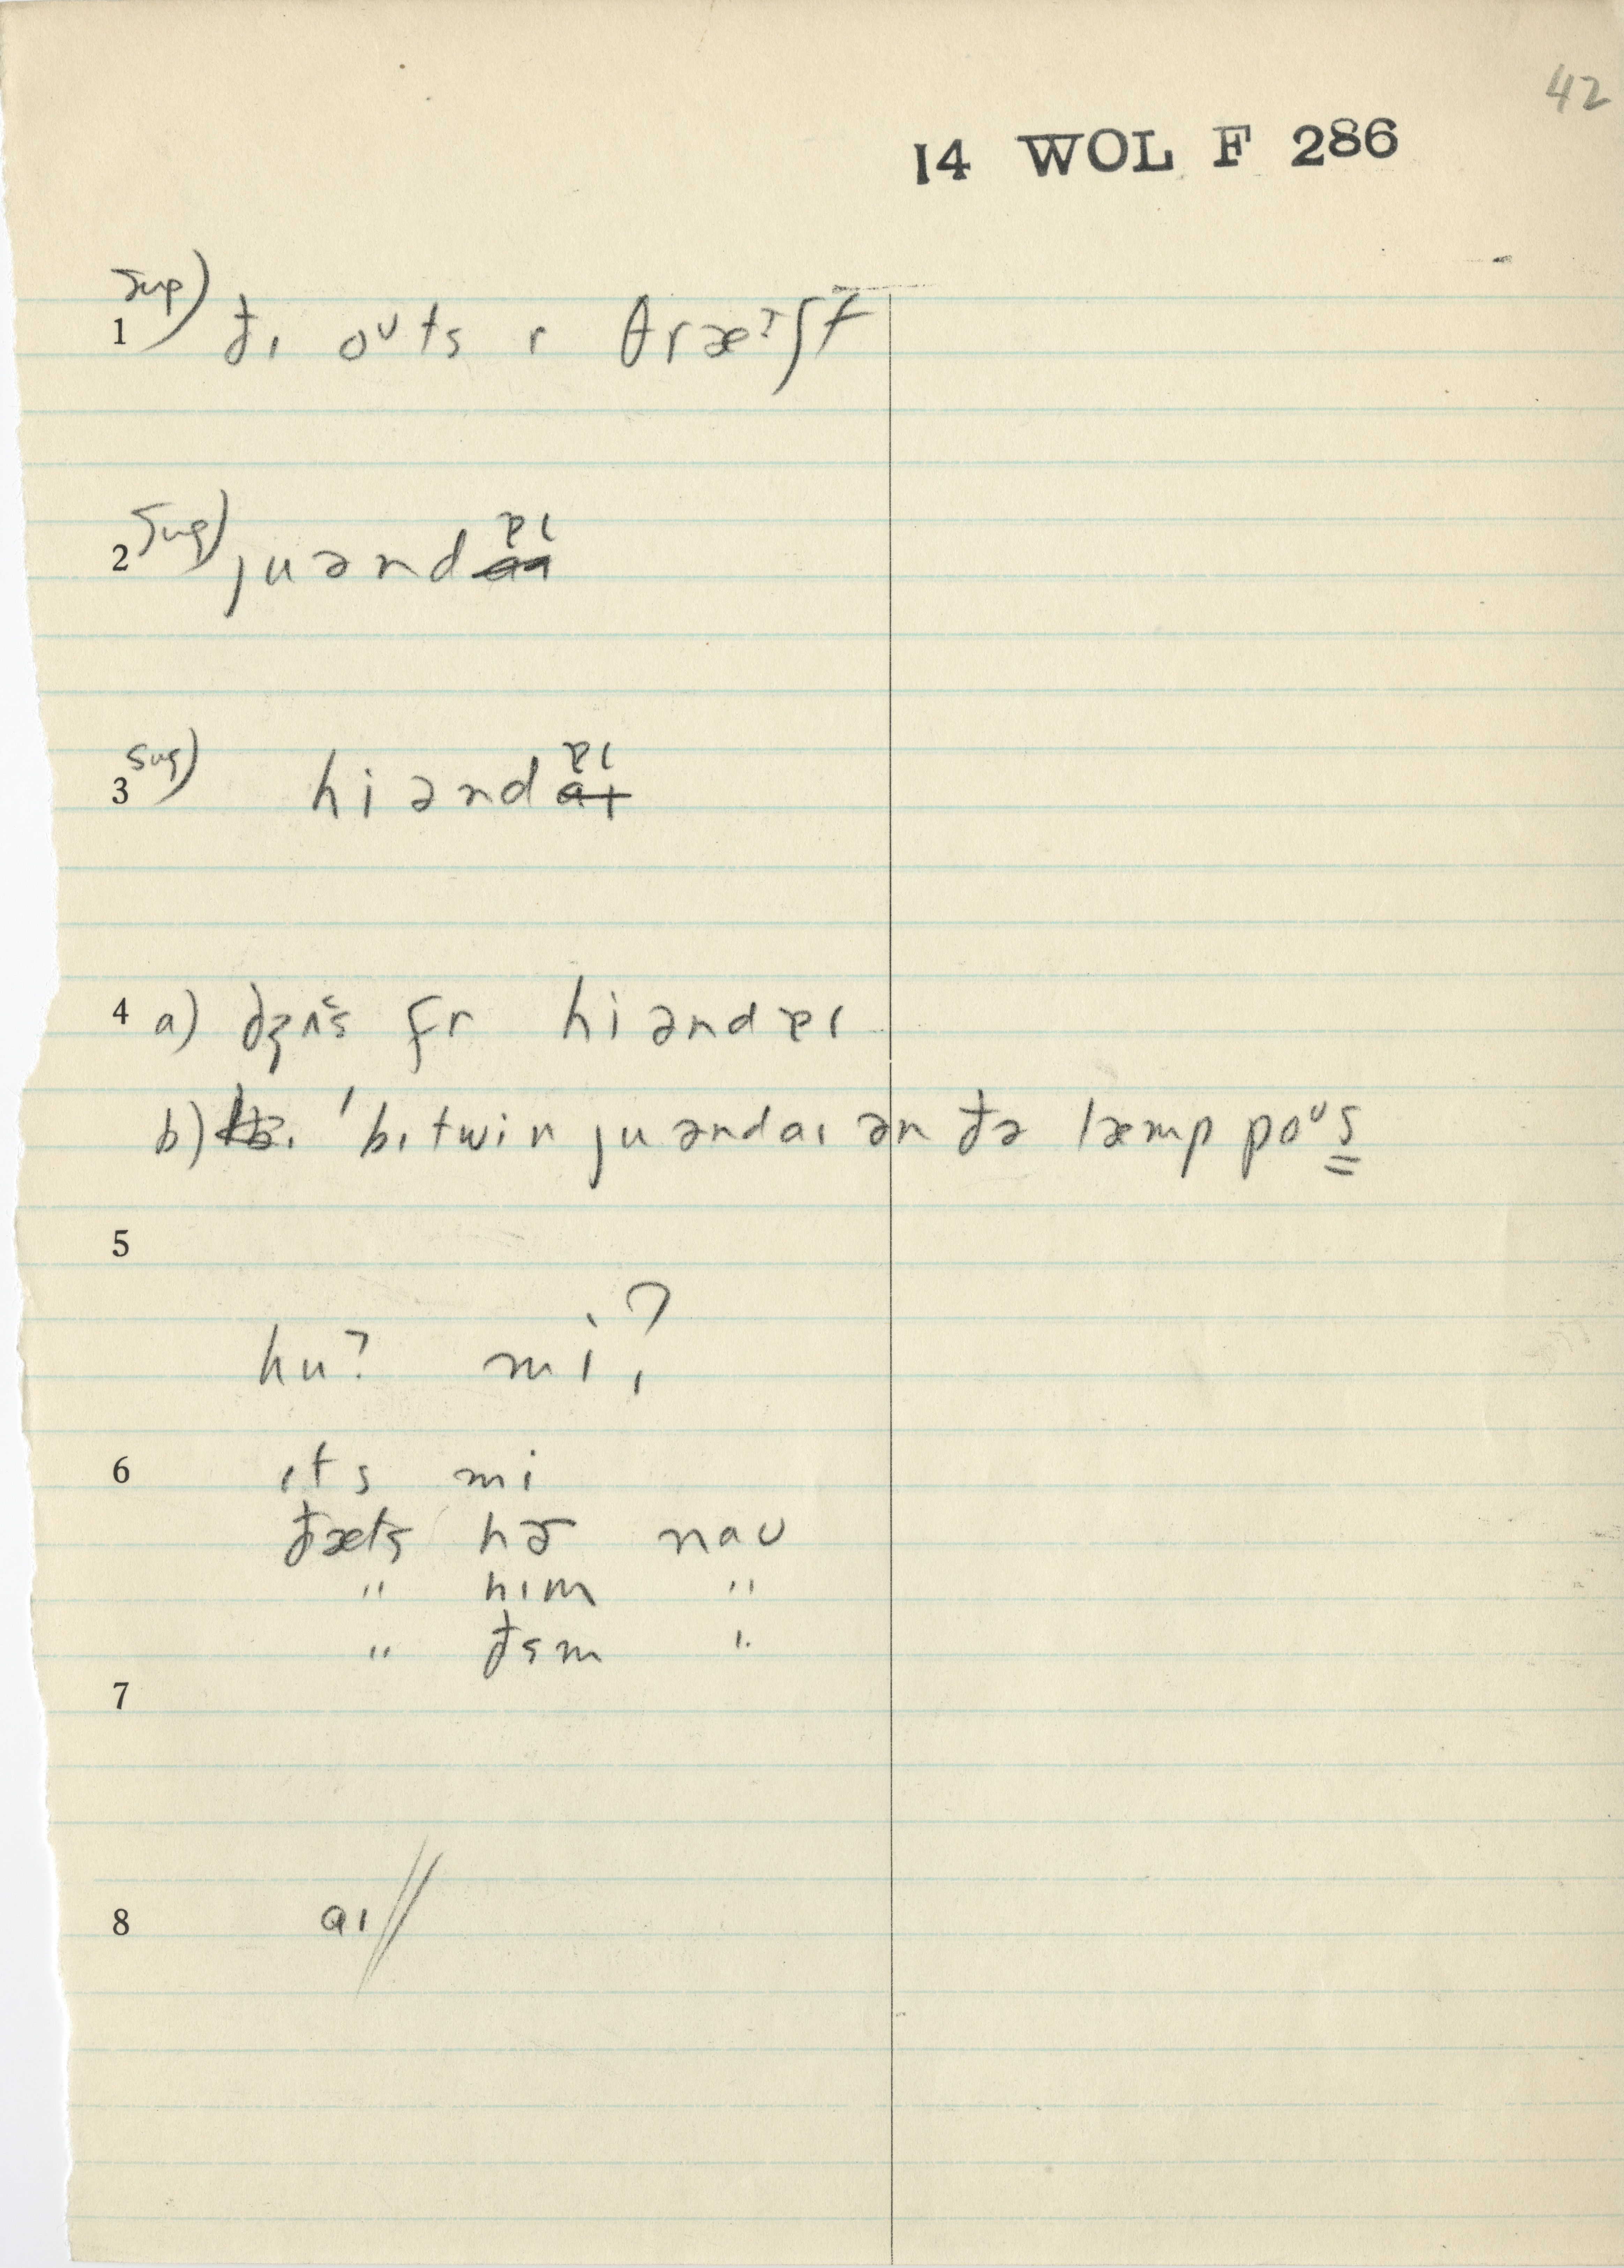 42
14 WOL F 286
1 sug) ðɪ oᶷts r θræˀʃt
2 sug) ju ənd ɐɪ
3 sug) hi ənd ɐɪ
4 a) dʒʌs fr hi ənd ɐɪ
b) 'bɪtwin ju ənd aɪ ən ðə læmp poᶷs
5
hu? mi?
6 ɪts mi
ðæts hɚ naʊ
" hɪm "
" ðɛm "
7
8 aɪ //